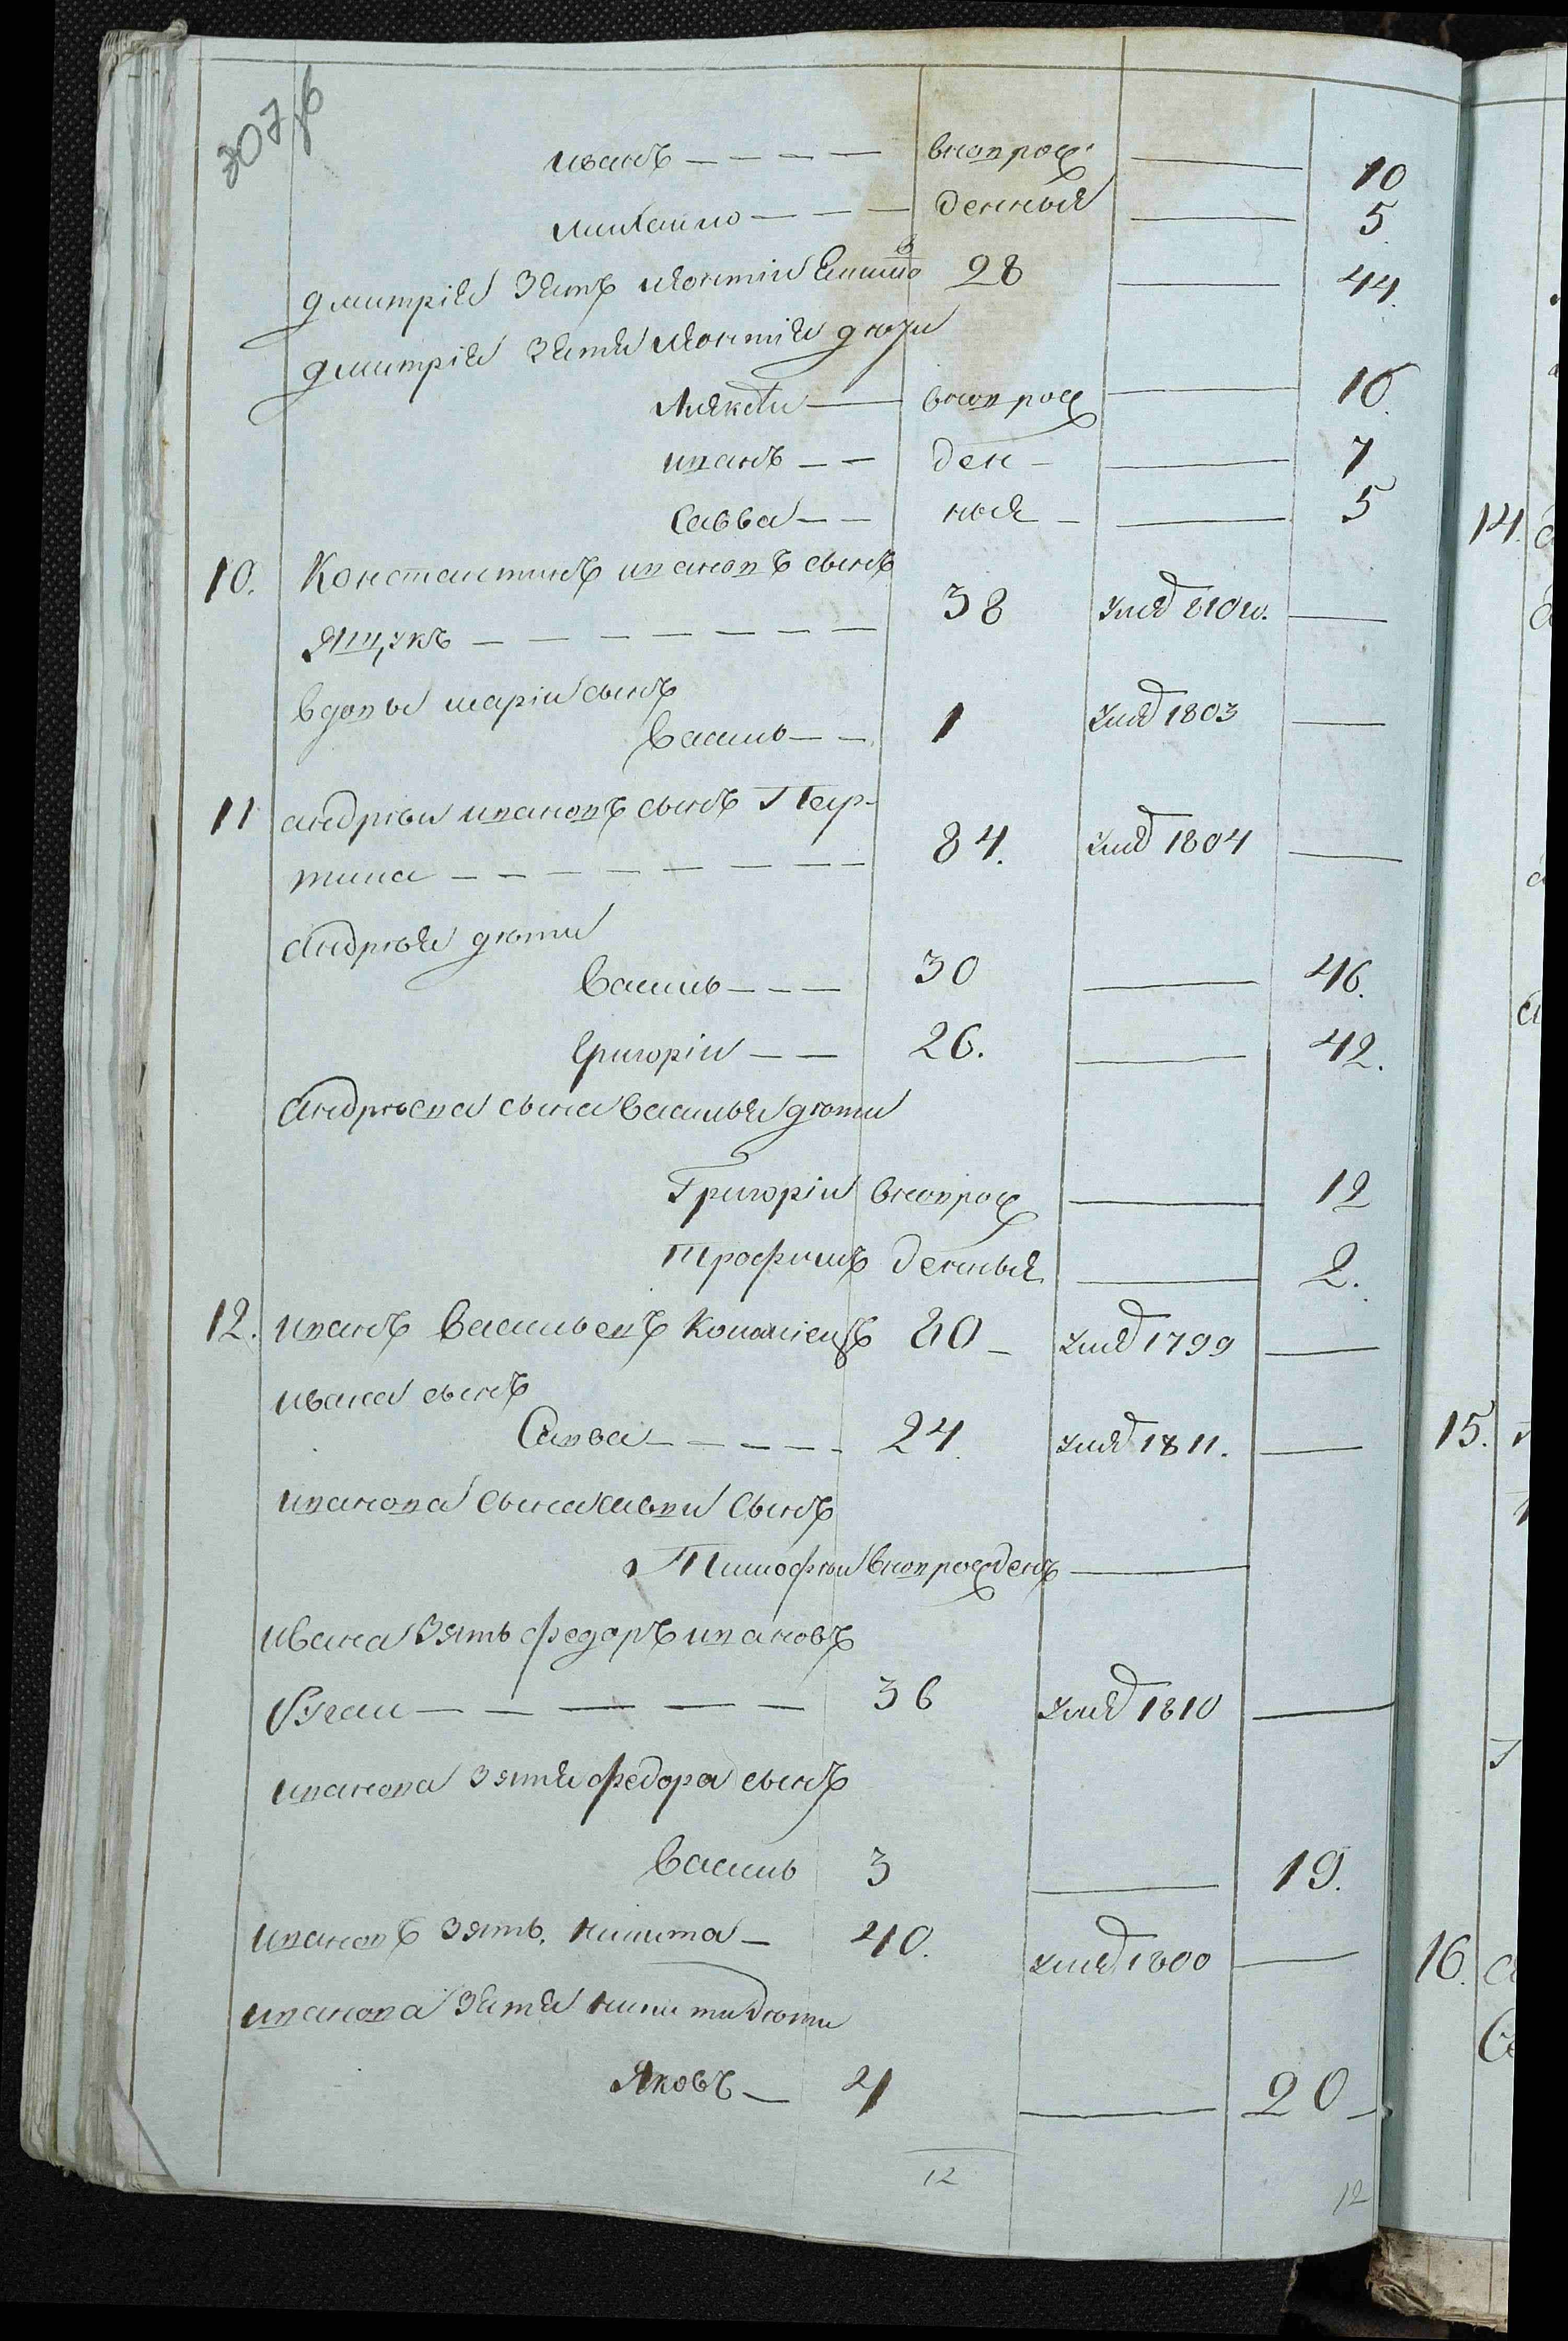 307об
иванъ — — — — вновърож — 10
михаило — — — денныя — 5
дмитрія зять леонтіи 28 — 44.
дмитрія зятя леонтія дѣти
Алексѣи — вновърож — 16.
иванъ — — ден — — 7
Савва — — ныя — — 5
10. Константинъ ивановъ сынъ
Ящукъ — — — — — — — 38 умре 810го. —
вдовы маріи сынъ
Василь — — 1 умре 1803 —
11 андрѣи ивановъ сынъ Пер-
тила — — — — — — — 84. умре 1804 —
андрѣя дѣти
Василь — — — 30 — 46.
Григоріи — — 26. — 42.
андрѣева сына василья дѣти
Григоріи вновърож — 12
Трофимъ денныя — 2.
12. иванъ васильевъ коломіецъ 80 — умре 1799 —
ивана сынъ
Савва — — — — — 24. умре 1811. —
иванова сына савви сынъ
Тимофѣи вновърожденъ —
ивана зять федоръ ивановъ
— — — — — 36 умре 1810 —
иванова зятя федора сынъ
Василь 3 — 19.
ивановъ зять. никита — 40. умре 1800 —
иванова зятя никити дѣти
Яковъ — 4 — 20 —
12 12
14.
15.
16.